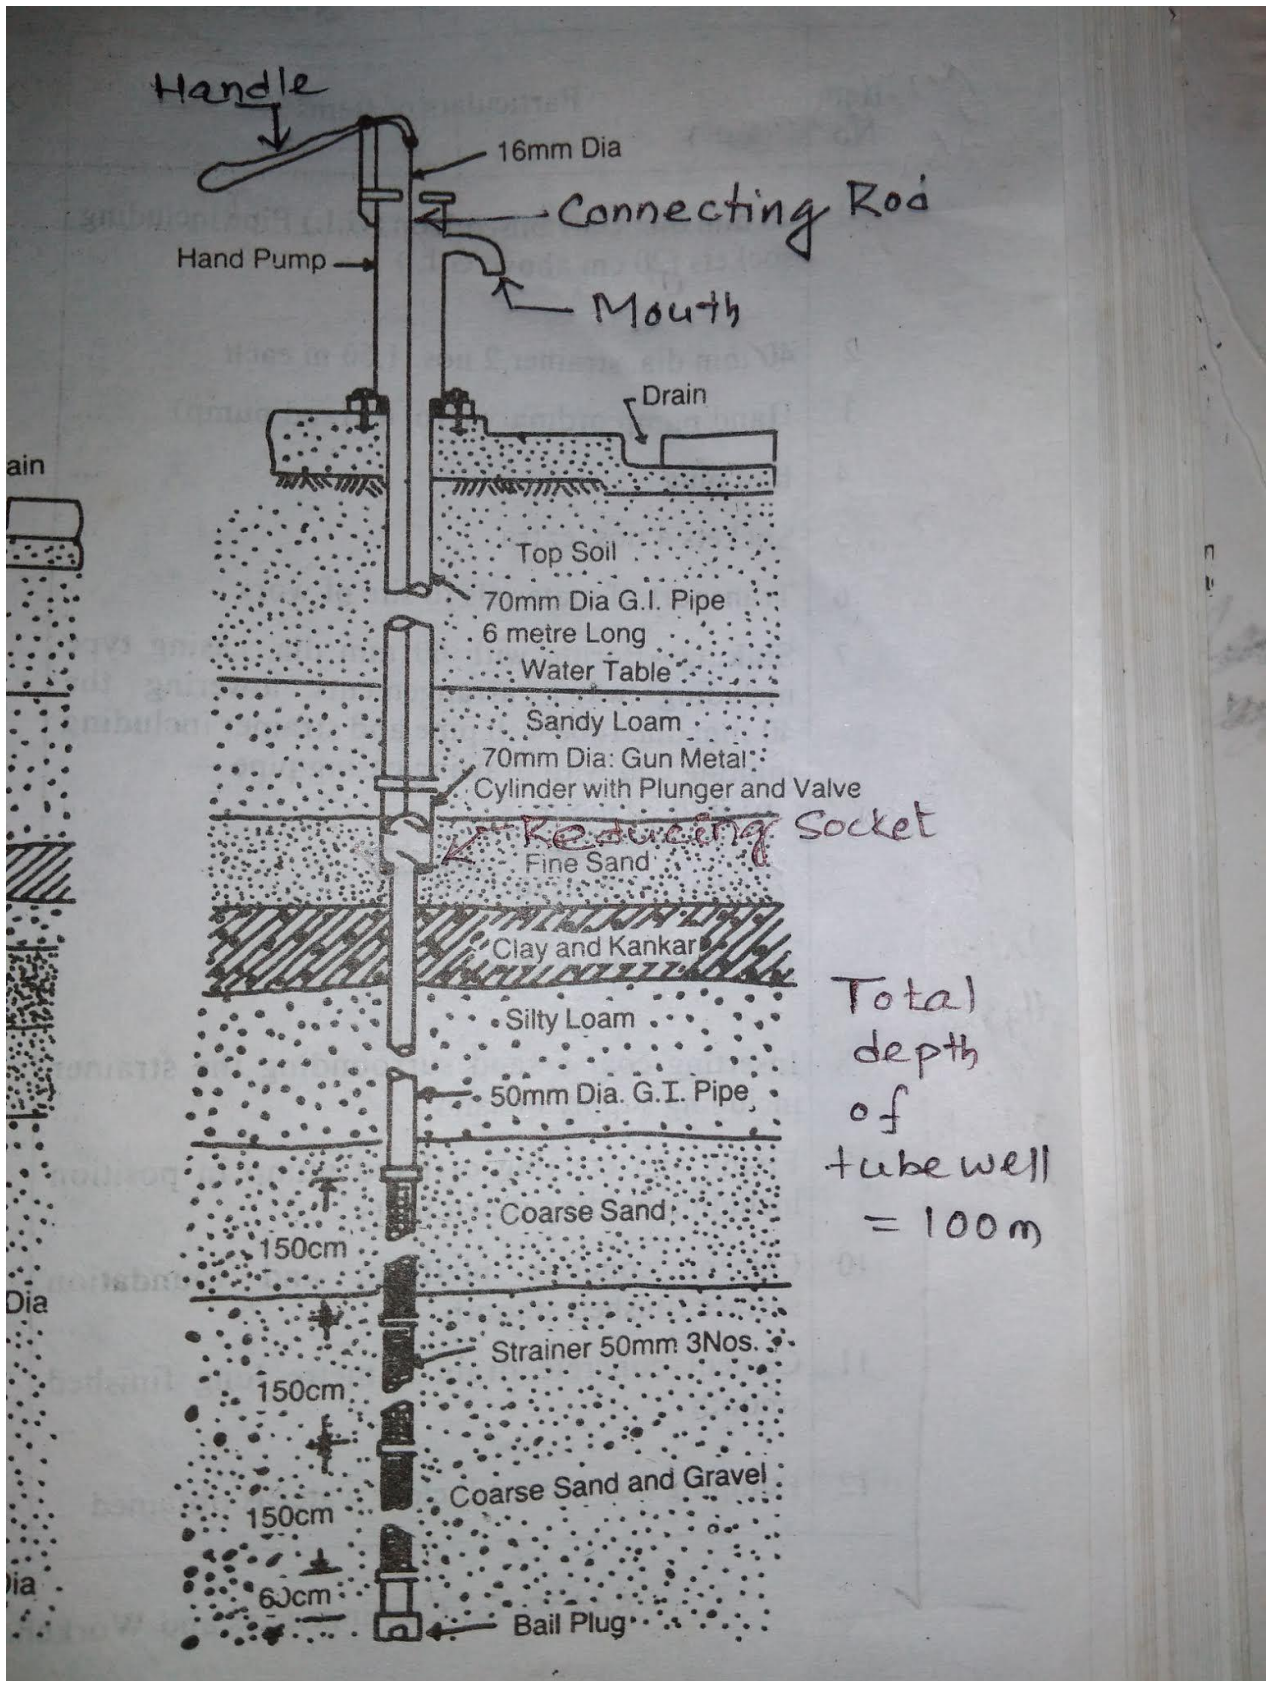 Handle
16mm Dia
Connecting Rod
Hand Pump
Mouth
Drain
ain
Top Soil
70mm Dia G.I. Pipe
6 metre Long
Water Table
Sandy Loam
70mm Dia: Gun Metal
Cylinder with Plunger and Valve
Reducing Socket
Fine Sand
Clay and Kankar
Silty Loam
50mm Dia. G.I. Pipe
Total
depth
of
tube well
= 100m
Coarse Sand
150cm
Dia
Strainer 50mm 3Nos.
150cm
Coarse Sand and Gravel
150cm
Dia
60cm
Bail Plug